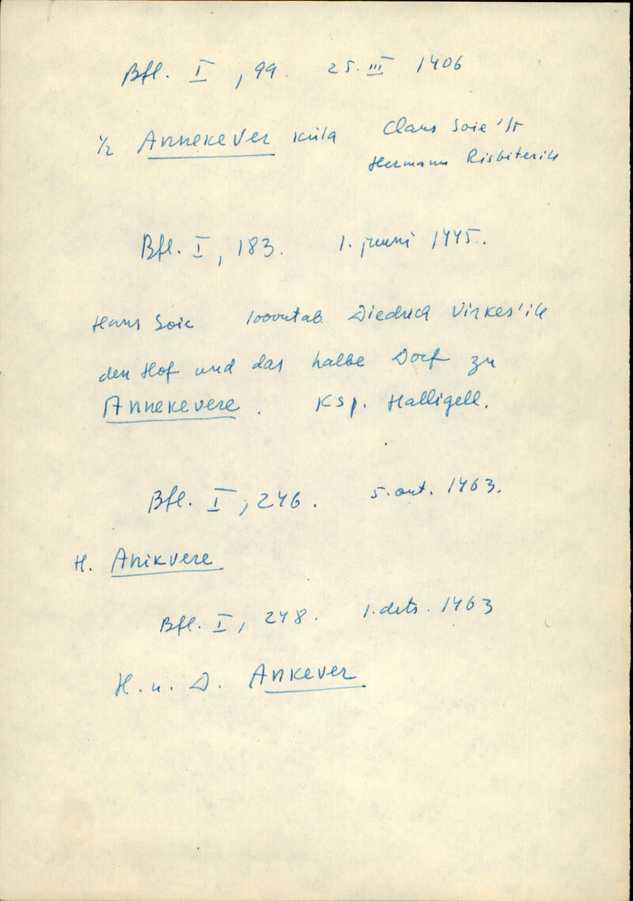 Bfl. I, 99. 25. III 1406
1/2 Annekever küla Claus Soie'lt
Hermann Risbiterile
Bfl. I, 183. 1. juuni 1445.
Hans Soie loovutab Diedrich Virkes'ile
den Hof und das halbe Dorf zu
Annekevere. Ksp. Halligell.
Bfl. I, 246. 5. okt. 1463.
H. Anikvere
Bfl. I, 248. 1. dets. 1463
H. u. D. Ankever